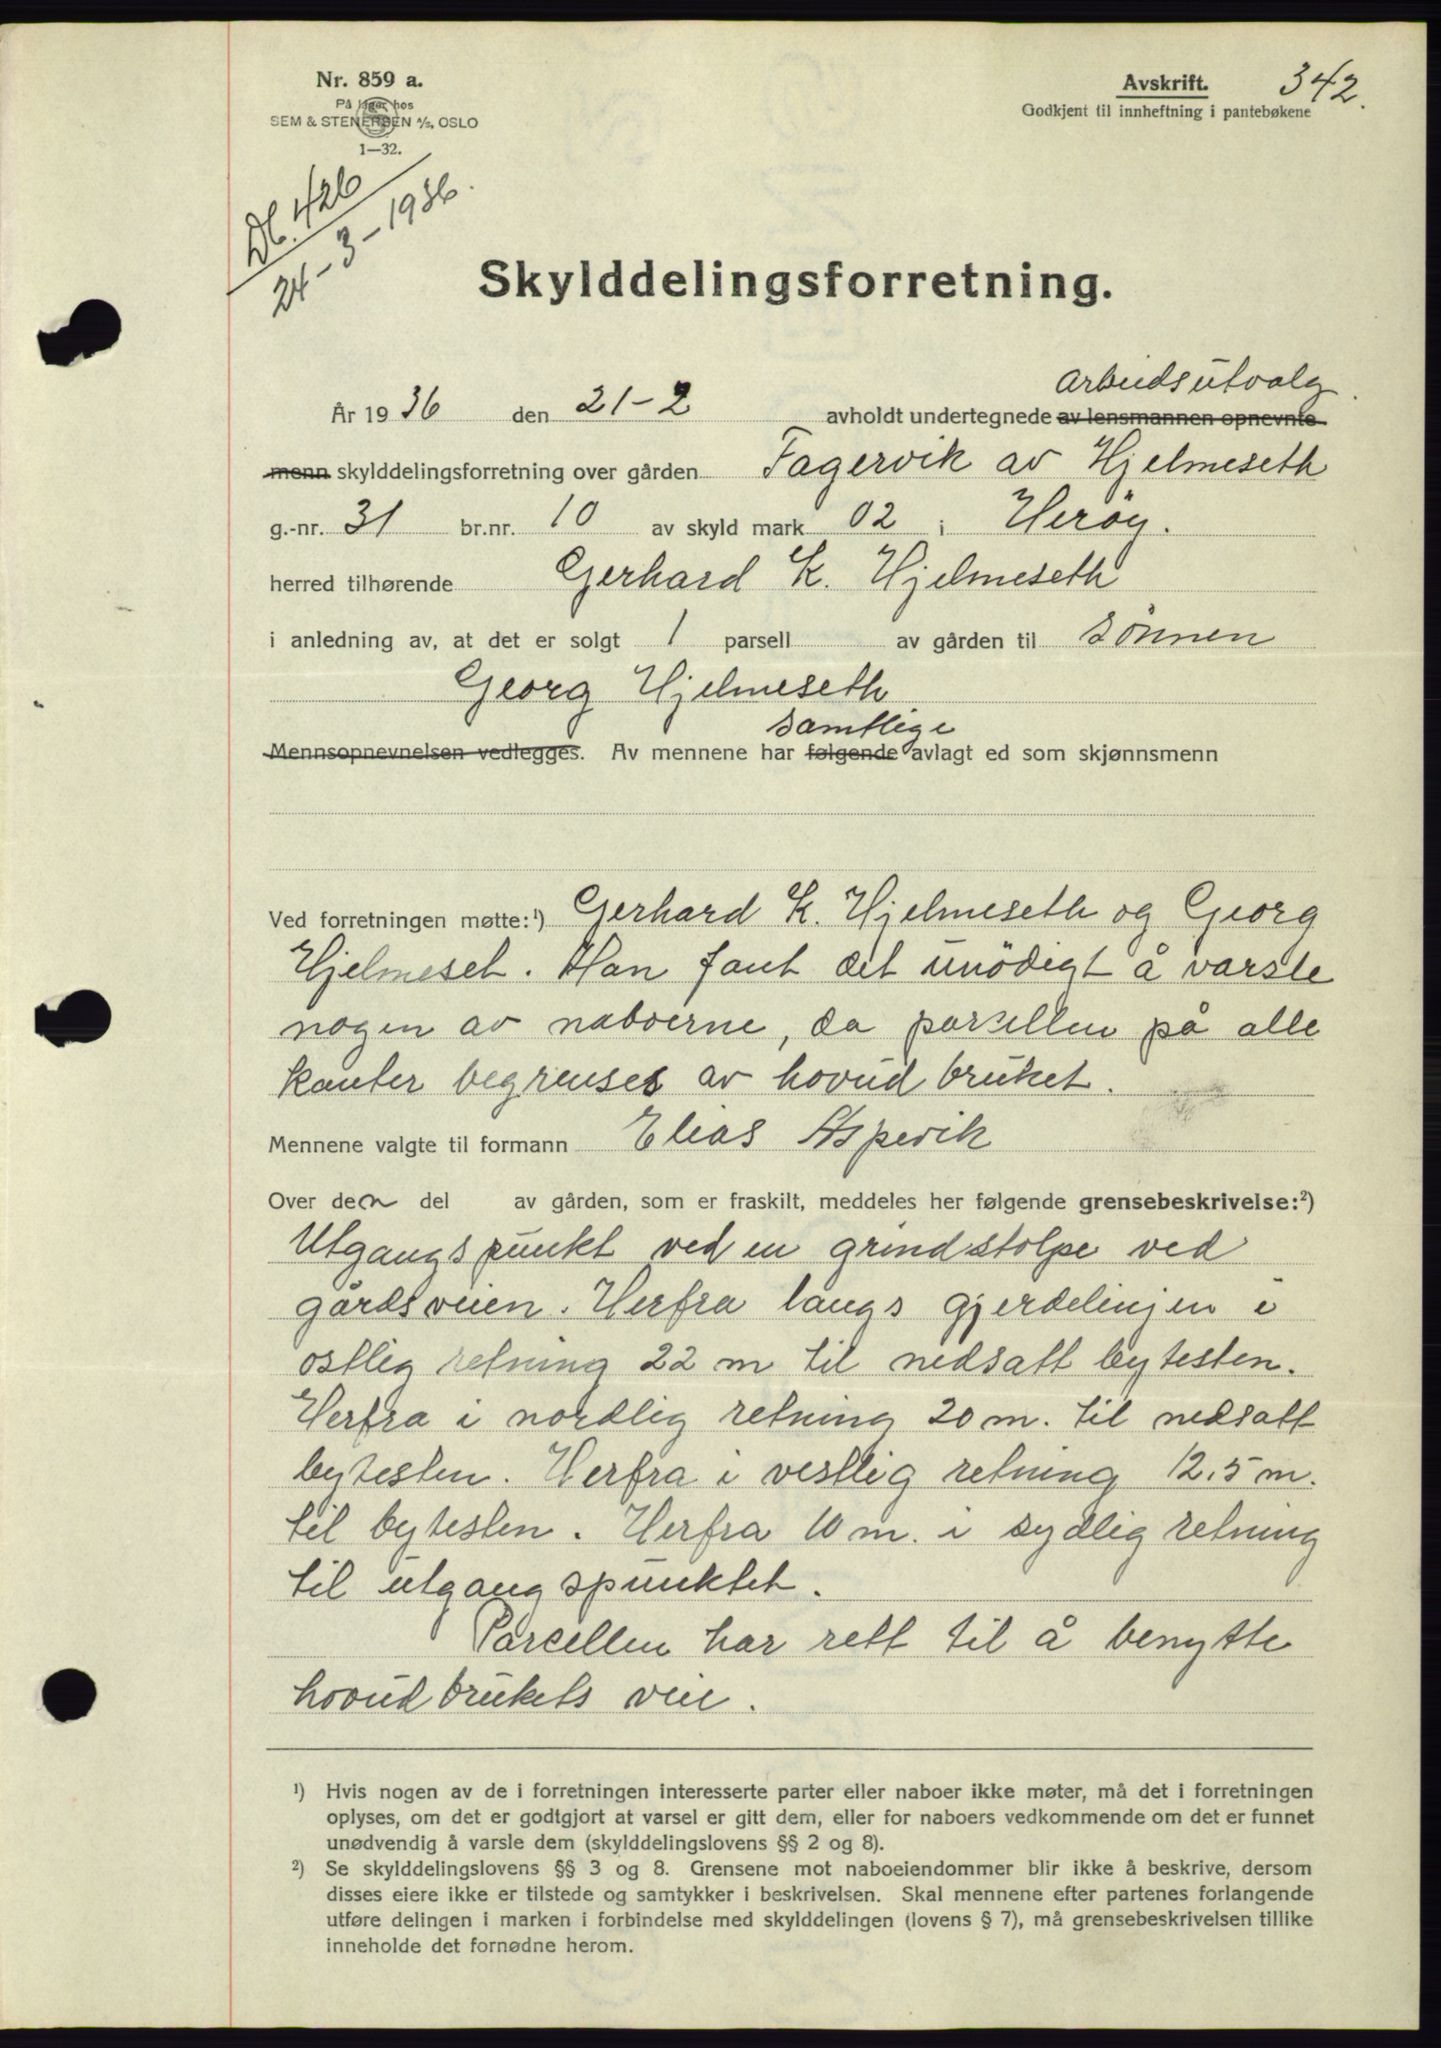 Nr. 859 a.
På lager hos
SEM & STENERSEN A/S, OSLO
1—32.
Avskrift.
342.
Godkjent til innheftning i pantebøkene
Db. 426
24-3-1936.
Skylddelingsforretning.
arbeidsutvalg
År 1936 den 21-2 avholdt undertegnede av lensmannen opnevnte
menn skylddelingsforretning over gården Fagervik av Hjelmeseth
g.-nr. 31 br.nr. 10 av skyld mark 02 i Heröy.
herred tilhørende Gerhard K. Hjelmeseth
i anledning av, at det er solgt 1 parsell av gården til sönnen
Georg Hjelmeseth
samtlige
Mennsopnevnelsen vedlegges. Av mennene har følgende avlagt ed som skjønnsmenn
Ved forretningen møtte:¹) Gerhard K. Hjelmeseth og Georg
Hjelmeset. Han fant det unödigt å varsle
nogen av naboerne, da parsellen på alle
kanter begrenses av hovudbruket.
Mennene valgte til formann Elias Aspevik
Over den del av gården, som er fraskilt, meddeles her følgende grensebeskrivelse:²)
Utgangspunkt ved en grindstolpe ved
gårdsveien. Herfra langs gjerdelinjen i
ostlig retning 22 m til nedsatt bytesten.
Herfra i nordlig retning 20 m. til nedsatt
bytesten. Herfra i vestlig retning 12.5 m.
til bytesten. Herfra 10 m. i sydlig retning
til utgangspunktet.
Parcellen har rett til å benytte
hovudbrukets veie.
¹) Hvis nogen av de i forretningen interesserte parter eller naboer ikke møter, må det i forretningen
oplyses, om det er godtgjort at varsel er gitt dem, eller for naboers vedkommende om det er funnet
unødvendig å varsle dem (skylddelingslovens §§ 2 og 8).
²) Se skylddelingslovens §§ 3 og 8. Grensene mot naboeiendommer blir ikke å beskrive, dersom
disses eiere ikke er tilstede og samtykker i beskrivelsen. Skal mennene efter partenes forlangende
utføre delingen i marken i forbindelse med skylddelingen (lovens § 7), må grensebeskrivelsen tillike
inneholde det fornødne herom.